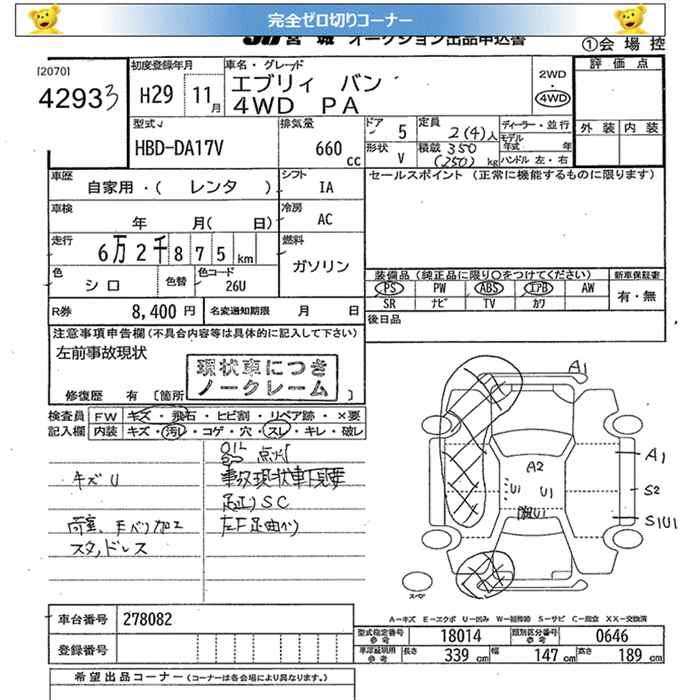 完全ゼロ切りコーナー
JU宮城 オークション出品申込書
①会場控
[2070]
42933
初度登録年月
H29 11月
車名・グレード
エブリィ バン
4WD PA
2WD
4WD
評価点
外装 内装
型式
HBD-DA17V
排気量
660 cc
ドア 5
形状 V
定員 2(4)人
積載 350
(250) kg
ディーラー・並行
モデル年式 年
ハンドル 左・右
車歴
自家用・( レンタ )
シフト
IA
セールスポイント (正常に機能するものに限ります)
車検
年 月( 日)
冷房
AC
走行
6万2千875km
燃料
ガソリン
色
シロ
色替
色コード
26U
装備品 (純正品に限り○をつけてください)
新車保証書
PS PW ABS エアB AW
SR ナビ TV カワ
有・無
R券
8,400 円
名変通知期限 月 日
後日品
注意事項申告欄 (不具合内容等は具体的に記入して下さい)
左前事故現状
現状車につき
ノークレーム
修復歴 有 [箇所 ]
検査員 FW キズ・飛石・ヒビ割・リペア跡・×要
記入欄 内装 キズ・汚レ・コゲ・穴・スレ・キレ・破レ
点灯
事故現状車下見要
SC
キズU
荷室、手バリ加工
スタッドレス
A1
A1
A2
U1
U1
U1
S2
S1U1
スペア
A−キズ E−エクボ U−凹み W−補修跡 S−サビ C−腐食 XX−交換済
車台番号 278082
登録番号
型式指定番号
参考
18014
類別区分番号
参考
0646
車庫証明用
参考
長さ 339 cm
幅 147 cm
高さ 189 cm
希望出品コーナー (コーナーは各会場により異なります。)